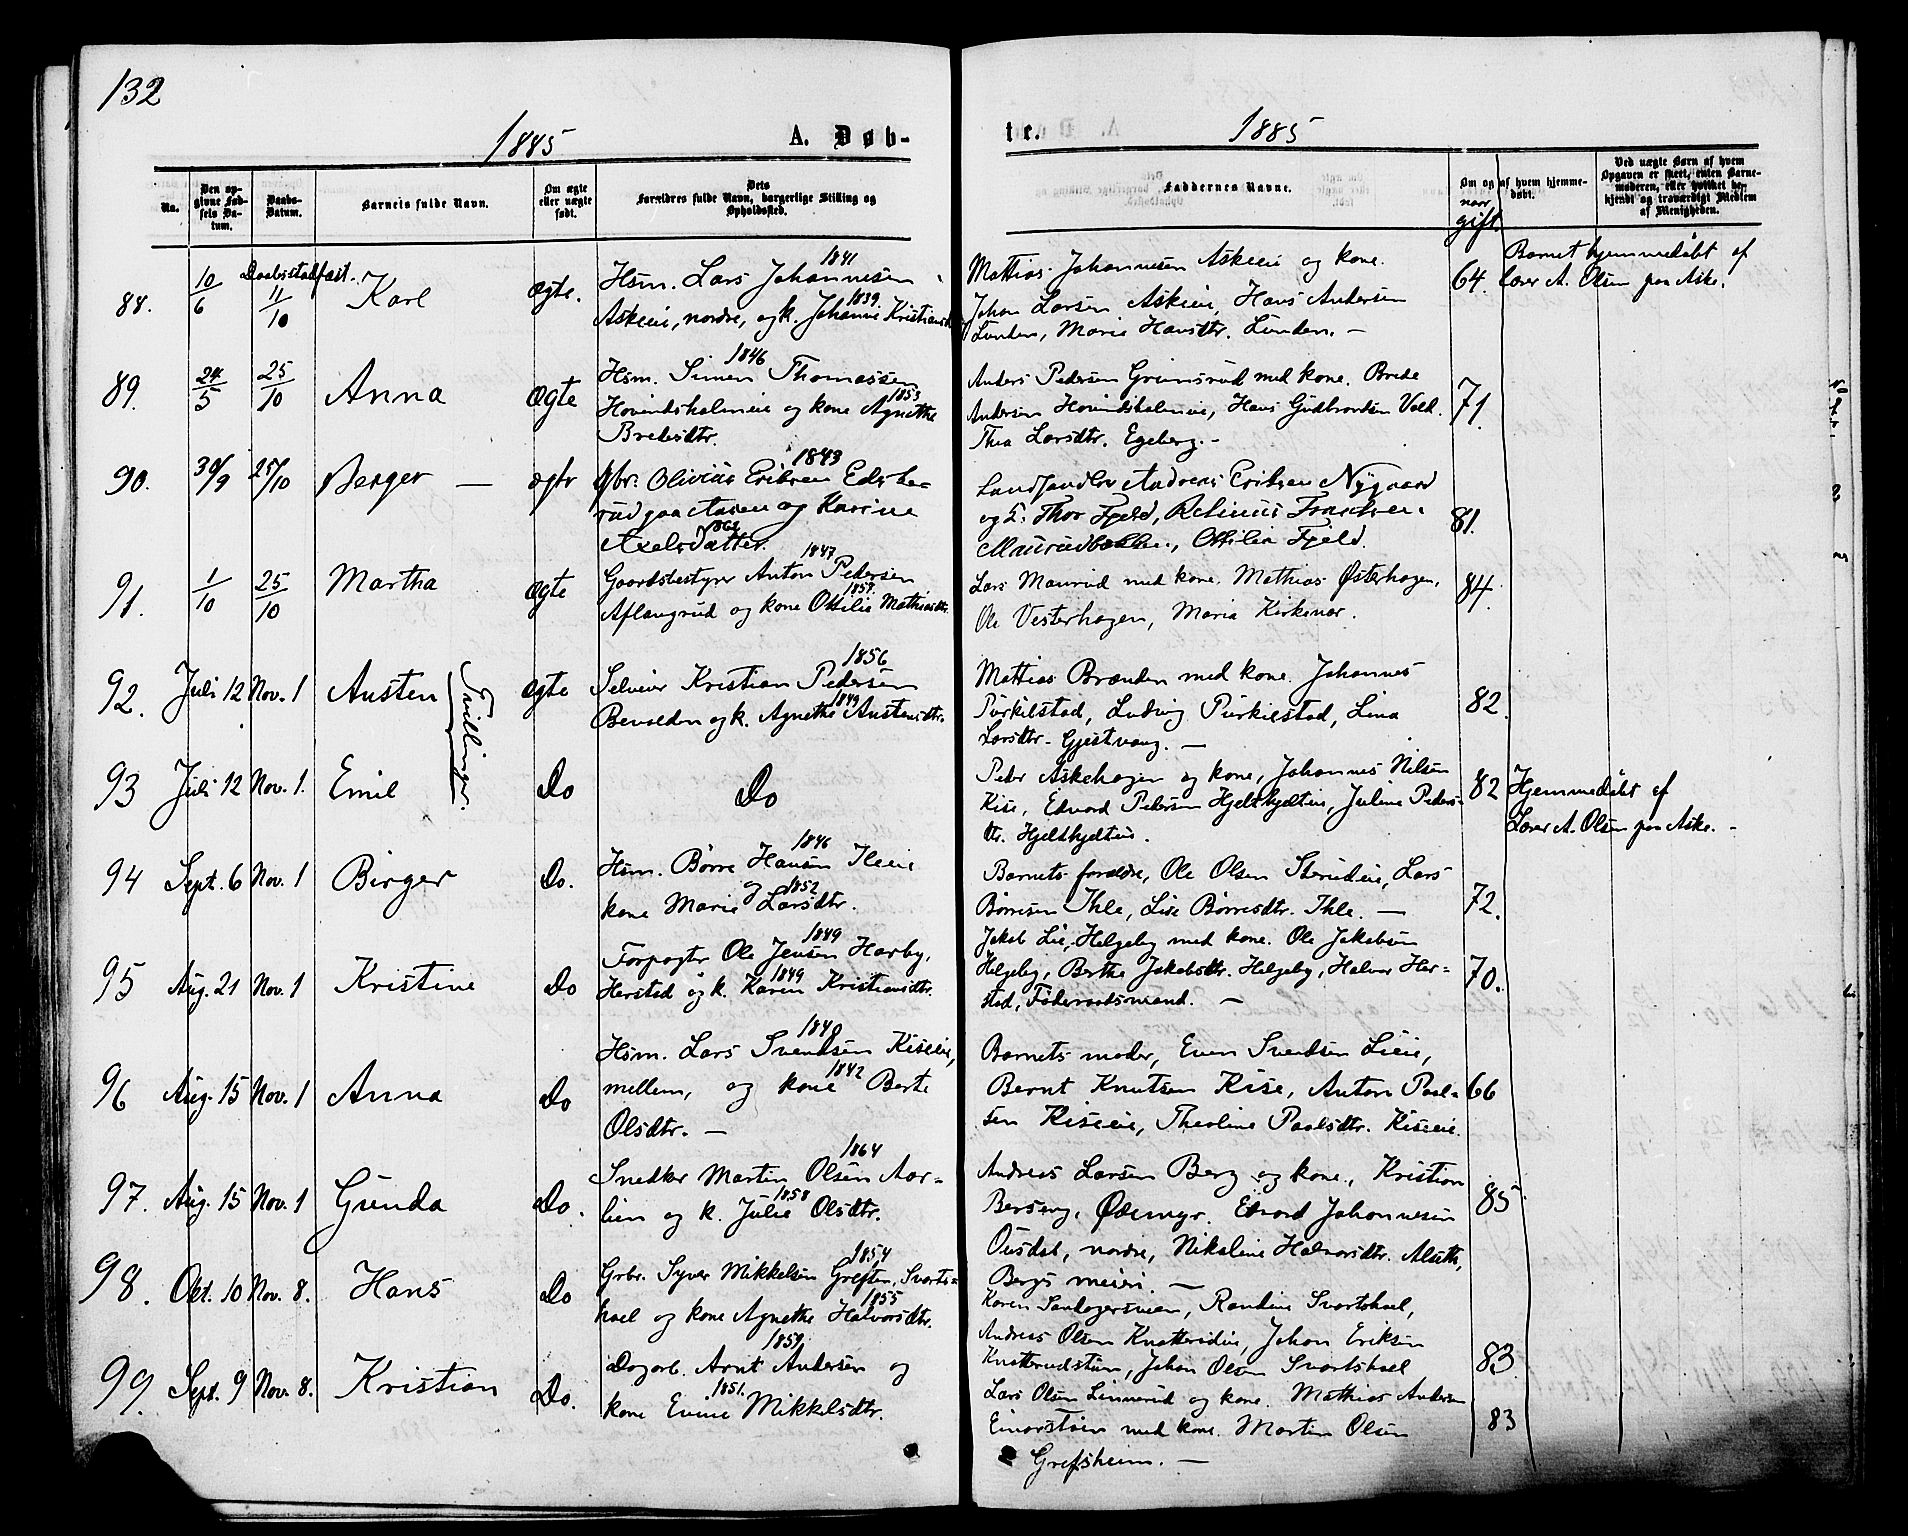 132
1885
A. Døb-
No.
Den op-
givne Fød-
sels Da-
tum.
Daabs-
Datum.
Barnets fulde Navn.
Om ægte
eller uægte
født.
Dets
Forældres fulde Navn, borgerlige Stilling og
Opholdssted.
88.
10/6
Daabsstadfæst.
11/10
Karl
Ægte.
Hsm. Lars Johannesen 1841
Askeie, nordre, og k. Johanne Kristiansd. 1839.
89.
24/5
25/10
Anna
Ægte
Hsm. Simen Thomassen 1846
Hovindsholmeie og kone Agnethe 1853
Bredesdtr.
90.
30/9
25/10
Berger —
ægte
Gbr. Olivius Eriksen
og Karine
Axelsdatter. 1862
1843
91.
1/10
25/10
Martha
Ægte
Gaardsbestyrer Anton Pedersen 1847
Aflangrud og kone Ottilie Mathiasdtr. 1859.
92.
Juli 12
Nov. 1
Austen
Tvillinger.
ægte
Selveier Kristian Pedersen 1856
og k. Agnethe Austensdtr. 1849
93
Juli 12
Nov. 1.
Emil
Do
Do
94
Sept. 6
Nov. 1
Birger
Do.
Hsm. Børre Hansen Ihleie 1846
og
kone Marie Larsdtr. 1852
95
Aug. 21
Nov. 1
Kristine
Do
Forpagter Ole Jensen Harby, 1849
Herstad og k. Karen Kristiansdtr. 1849
96
Aug. 15
Nov. 1
Anna
Do
Hsm. Lars Svendsen Kiseeie, 1840
mellem, og kone Berte 1842
Olsdtr. —
97.
Aug. 15
Nov. 1
Gunda
Do.
Snedker Martin Olsen Aar= 1864
lien og k. Julie Olsdtr. 1858
98.
Okt. 10
Nov. 8.
Hans
Do
Grbr. Syver Mikkelsen Greften, Svarts= 1854
hoel og kone Agnethe Halvorsdtr. 1855
99.
Sept. 9
Nov. 8.
Kristian
Do.
Dagarb. Arnt Andersen og 1859.
kone Evine Mikkelsdtr. 1851.
te.
1885
Faddernes Navne.
Om og af hvem hjemme-
døbt.
naar
gift.
Ved uægte Børn af hvem
Opgaven er skeet, enten Barne-
moderen, eller hvilket be-
kjendt og troværdigt Medlem
af Menigheden.
Mathias Johannesen Askeie og kone.
Johan Larsen Askeie, Hans Andersen
Lunden, Marie Hansdtr. Lunden. —
64.
Barnet hjemmedøbt af
Lærer A. Olsen paa Aske.
Anders Pedersen Grimsrud med kone. Brede
Andersen Hovindsholmeie, Hans Gudbrandsen Vold.
Thea Larsdtr. Egeberg. —
71.
Landhandler Andreas Eriksen Nygaard
og k. Thor Fjeld,
Maurudbakken, Ottilia Fjeld.
81.
Lars Maurud med kone. Mathias Østerhagen,
Ole Vesterhagen, Maria Kirkenær.
84.
Mathias Brænden med kone. Johannes
Purkilstad, Ludvig Purkilstad, Lina
Larsdtr. Gjestvang. —
82.
Peder Askehagen og kone, Johannes Nilsen
Kise, Edvard Pedersen, Juline Peders=
dtr.
82
Hjemmedøbt af
Lærer A. Olsen paa Aske. —
Barnets forældre, Ole Olsen Sterudeie, Lars
Børresen Ihle, Lise Børresdtr. Ihle. —
72.
Jakob Lie, Helgeby med kone. Ole Jakobsen
Helgeby, Berthe Jakobsdtr. Helgeby, Halvor Her=
stad, Føderaadsmand. —
70.
Barnets moder, Even Svendsen Lieie,
Bernt Knutsen Kise, Anton Paul=
sen Kiseeie, Theoline Paulsdtr. Kiseeie.
66
Andreas Larsen Berg og kone, Kristian
Berseng, Ødemyr. Edvard Johannesen
Ousdal, nordre, Nikoline Halvorsdtr. Alseth,
Bergs meieri. —
85.
Karen Sandagersveen, Randine Svartshoel,
Andreas Olsen Knatterudeie, Johan Eriksen
Knatterudstuen, Johan Olsen Svartshoel
83.
Lars Olsen Linnerud og kone. Mathias Andersen
Einarstøen med kone. Martin Olsen
Grefsheim. —
83